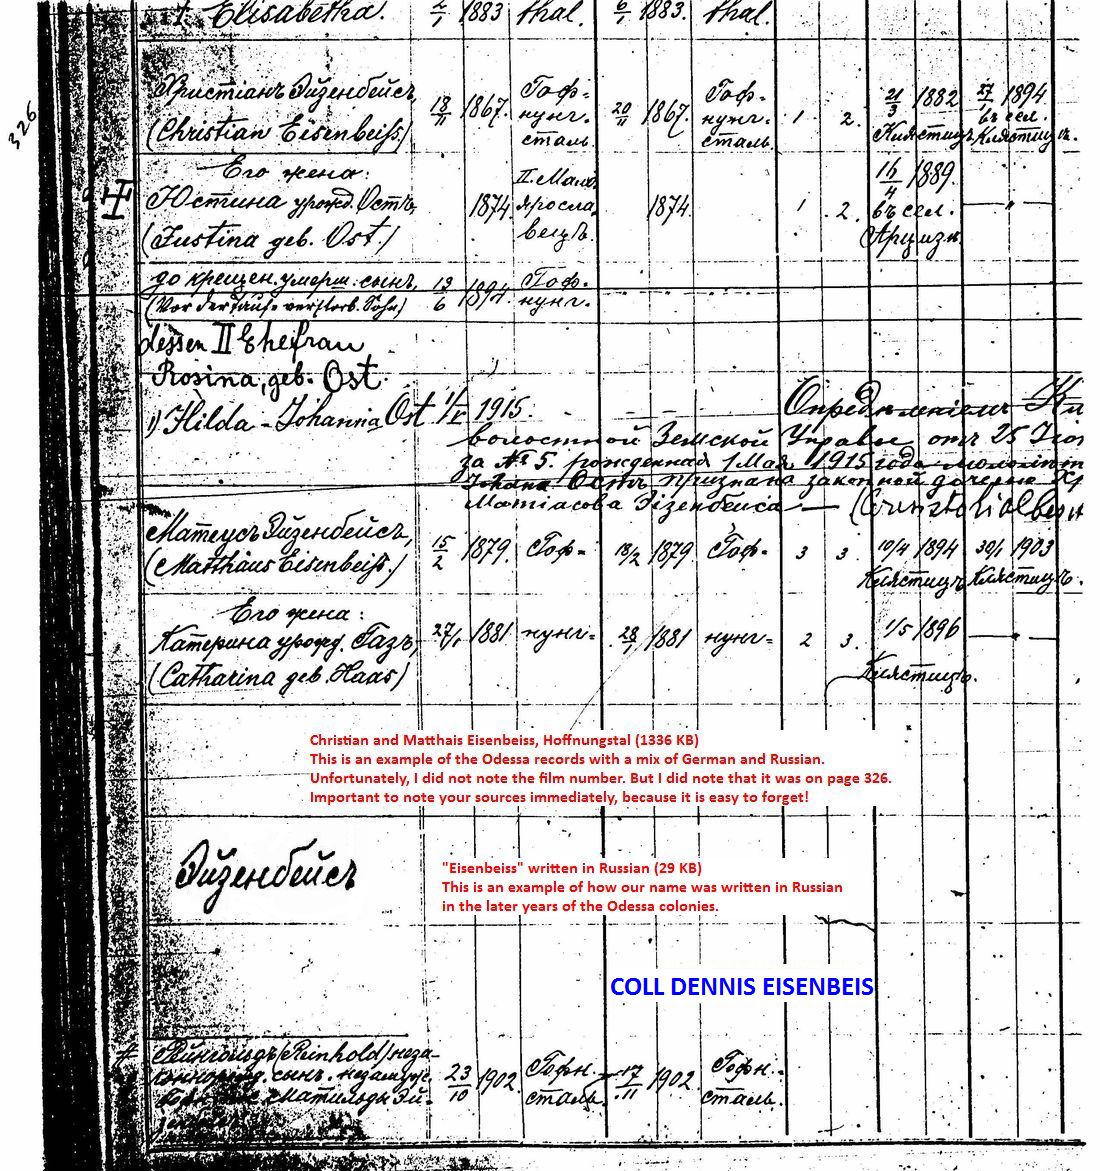 Elisabetha. 2/1 1883 thal. 6/1 1883. thal.
326
Христіанъ Эйзенбейсъ, 18/II 1867. Гоф- 20/II 1867. Гоф- 1. 2. 21/3 1882 27/2 1894
(Christian Eisenbeiß) нунг- сталь. нунг- сталь. Клястицъ. въ сел. Клястицъ.
Его жена: II. Мало- 16/4 1889.
Юстина урожд. Остъ, 1874 яросла- 1874. 1 2. въ сел. — " —
(Justina geb. Ost.) вецъ. Арцизъ
до крещен. умерш. сынъ, 19/6 1894. Гоф-
(Vor der Taufe verstorb. Sohn) нунг-
dessen II Ehefrau
Rosina, geb. Ost.
1) Hilda - Johanna Ost 1/V 1915. Опредѣленіемъ
волостной Земской Управы отъ 25
за № 5. рожденная 1 Мая 1915 года
Остъ признана законной дочерью
Матіасова Эізенбейса —
Матеусъ Эйзенбейсъ, 15/2 1879. Гоф- 18/2 1879 Гоф- 3 3. 10/4 1894 30/1 1903
(Matthäus Eisenbeiß.) Клястицъ Клястицъ.
Его жена:
Катерина урожд. Газъ, 27/1 1881 нунг- 28/1 1881 нунг- 2 3. 1/5 1896 — " —
(Catharina geb. Haas) Клястицъ.
Christian and Matthais Eisenbeiss, Hoffnungstal (1336 KB)
This is an example of the Odessa records with a mix of German and Russian.
Unfortunately, I did not note the film number. But I did note that it was on page 326.
Important to note your sources immediately, because it is easy to forget!
Эйзенбейсъ
"Eisenbeiss" written in Russian (29 KB)
This is an example of how our name was written in Russian
in the later years of the Odessa colonies.
COLL DENNIS EISENBEIS
Рейнгольдъ (Reinhold) неза- Гофн- Гофн-
сынъ 23/10 1902. сталь. 17/11 1902. сталь.
Матильды Эй-